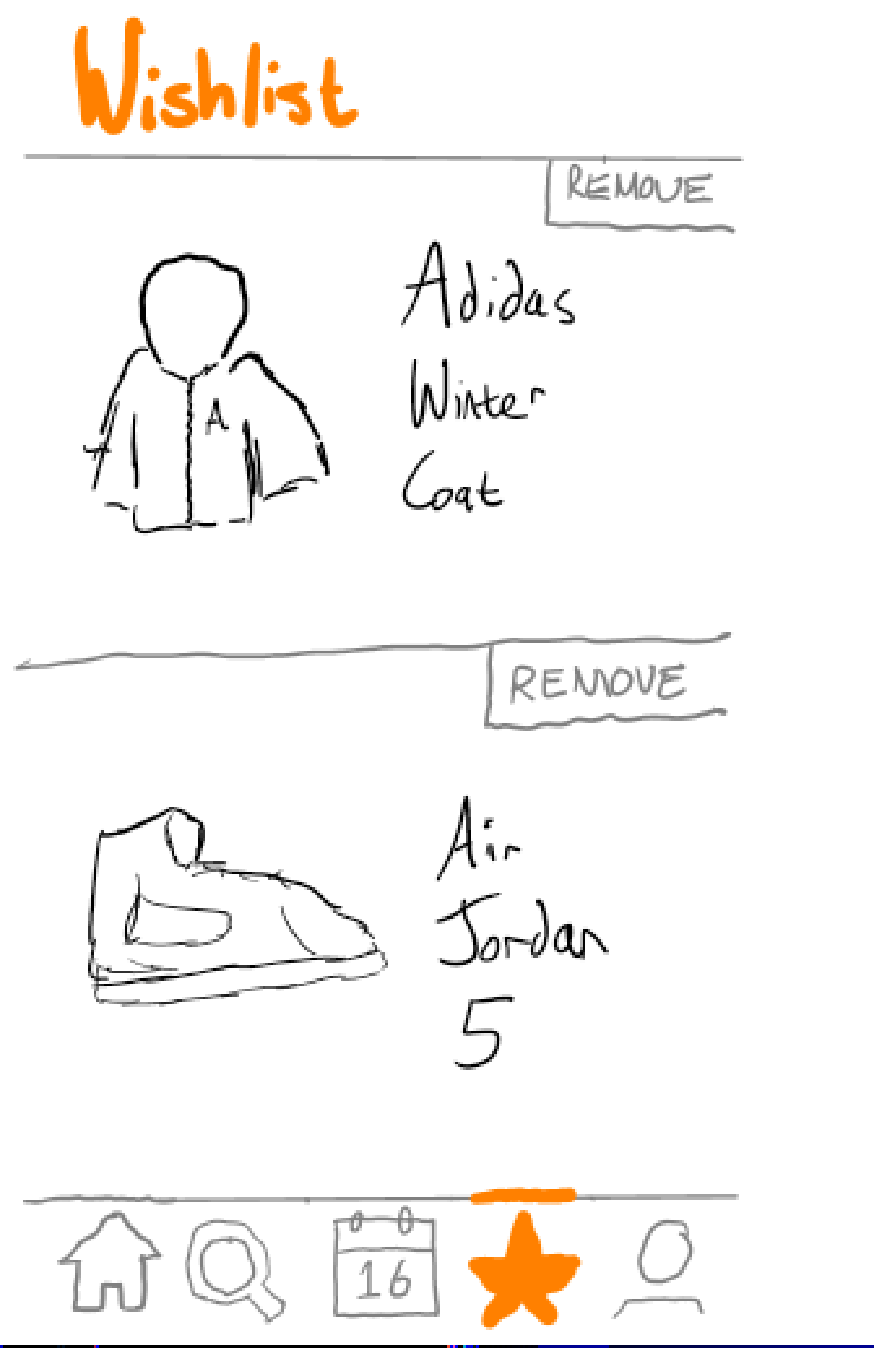 Wishlist
REMOVE
Adidas
Winter
A
Coat
REMOVE
Air
Jordan
5
16